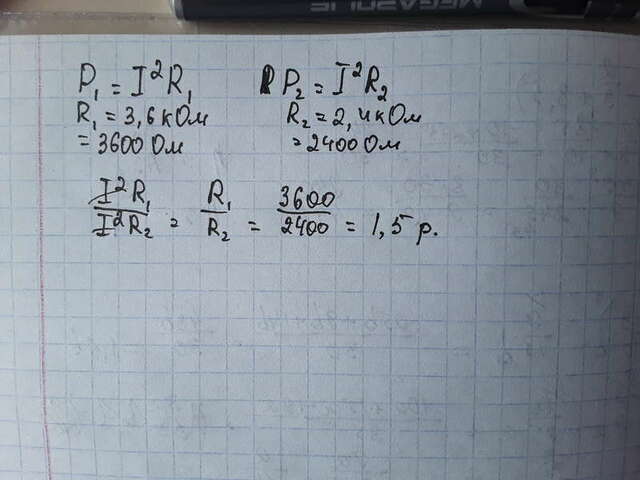 MEGASOLIE
P₁ = I²R₁
P₂ = I²R₂
R₁ = 3,6 кОм
R₂ = 2,4 кОм
= 3600 Ом
= 2400 Ом
I²R₁/I²R₂ = R₁/R₂ = 3600/2400 = 1,5 р.